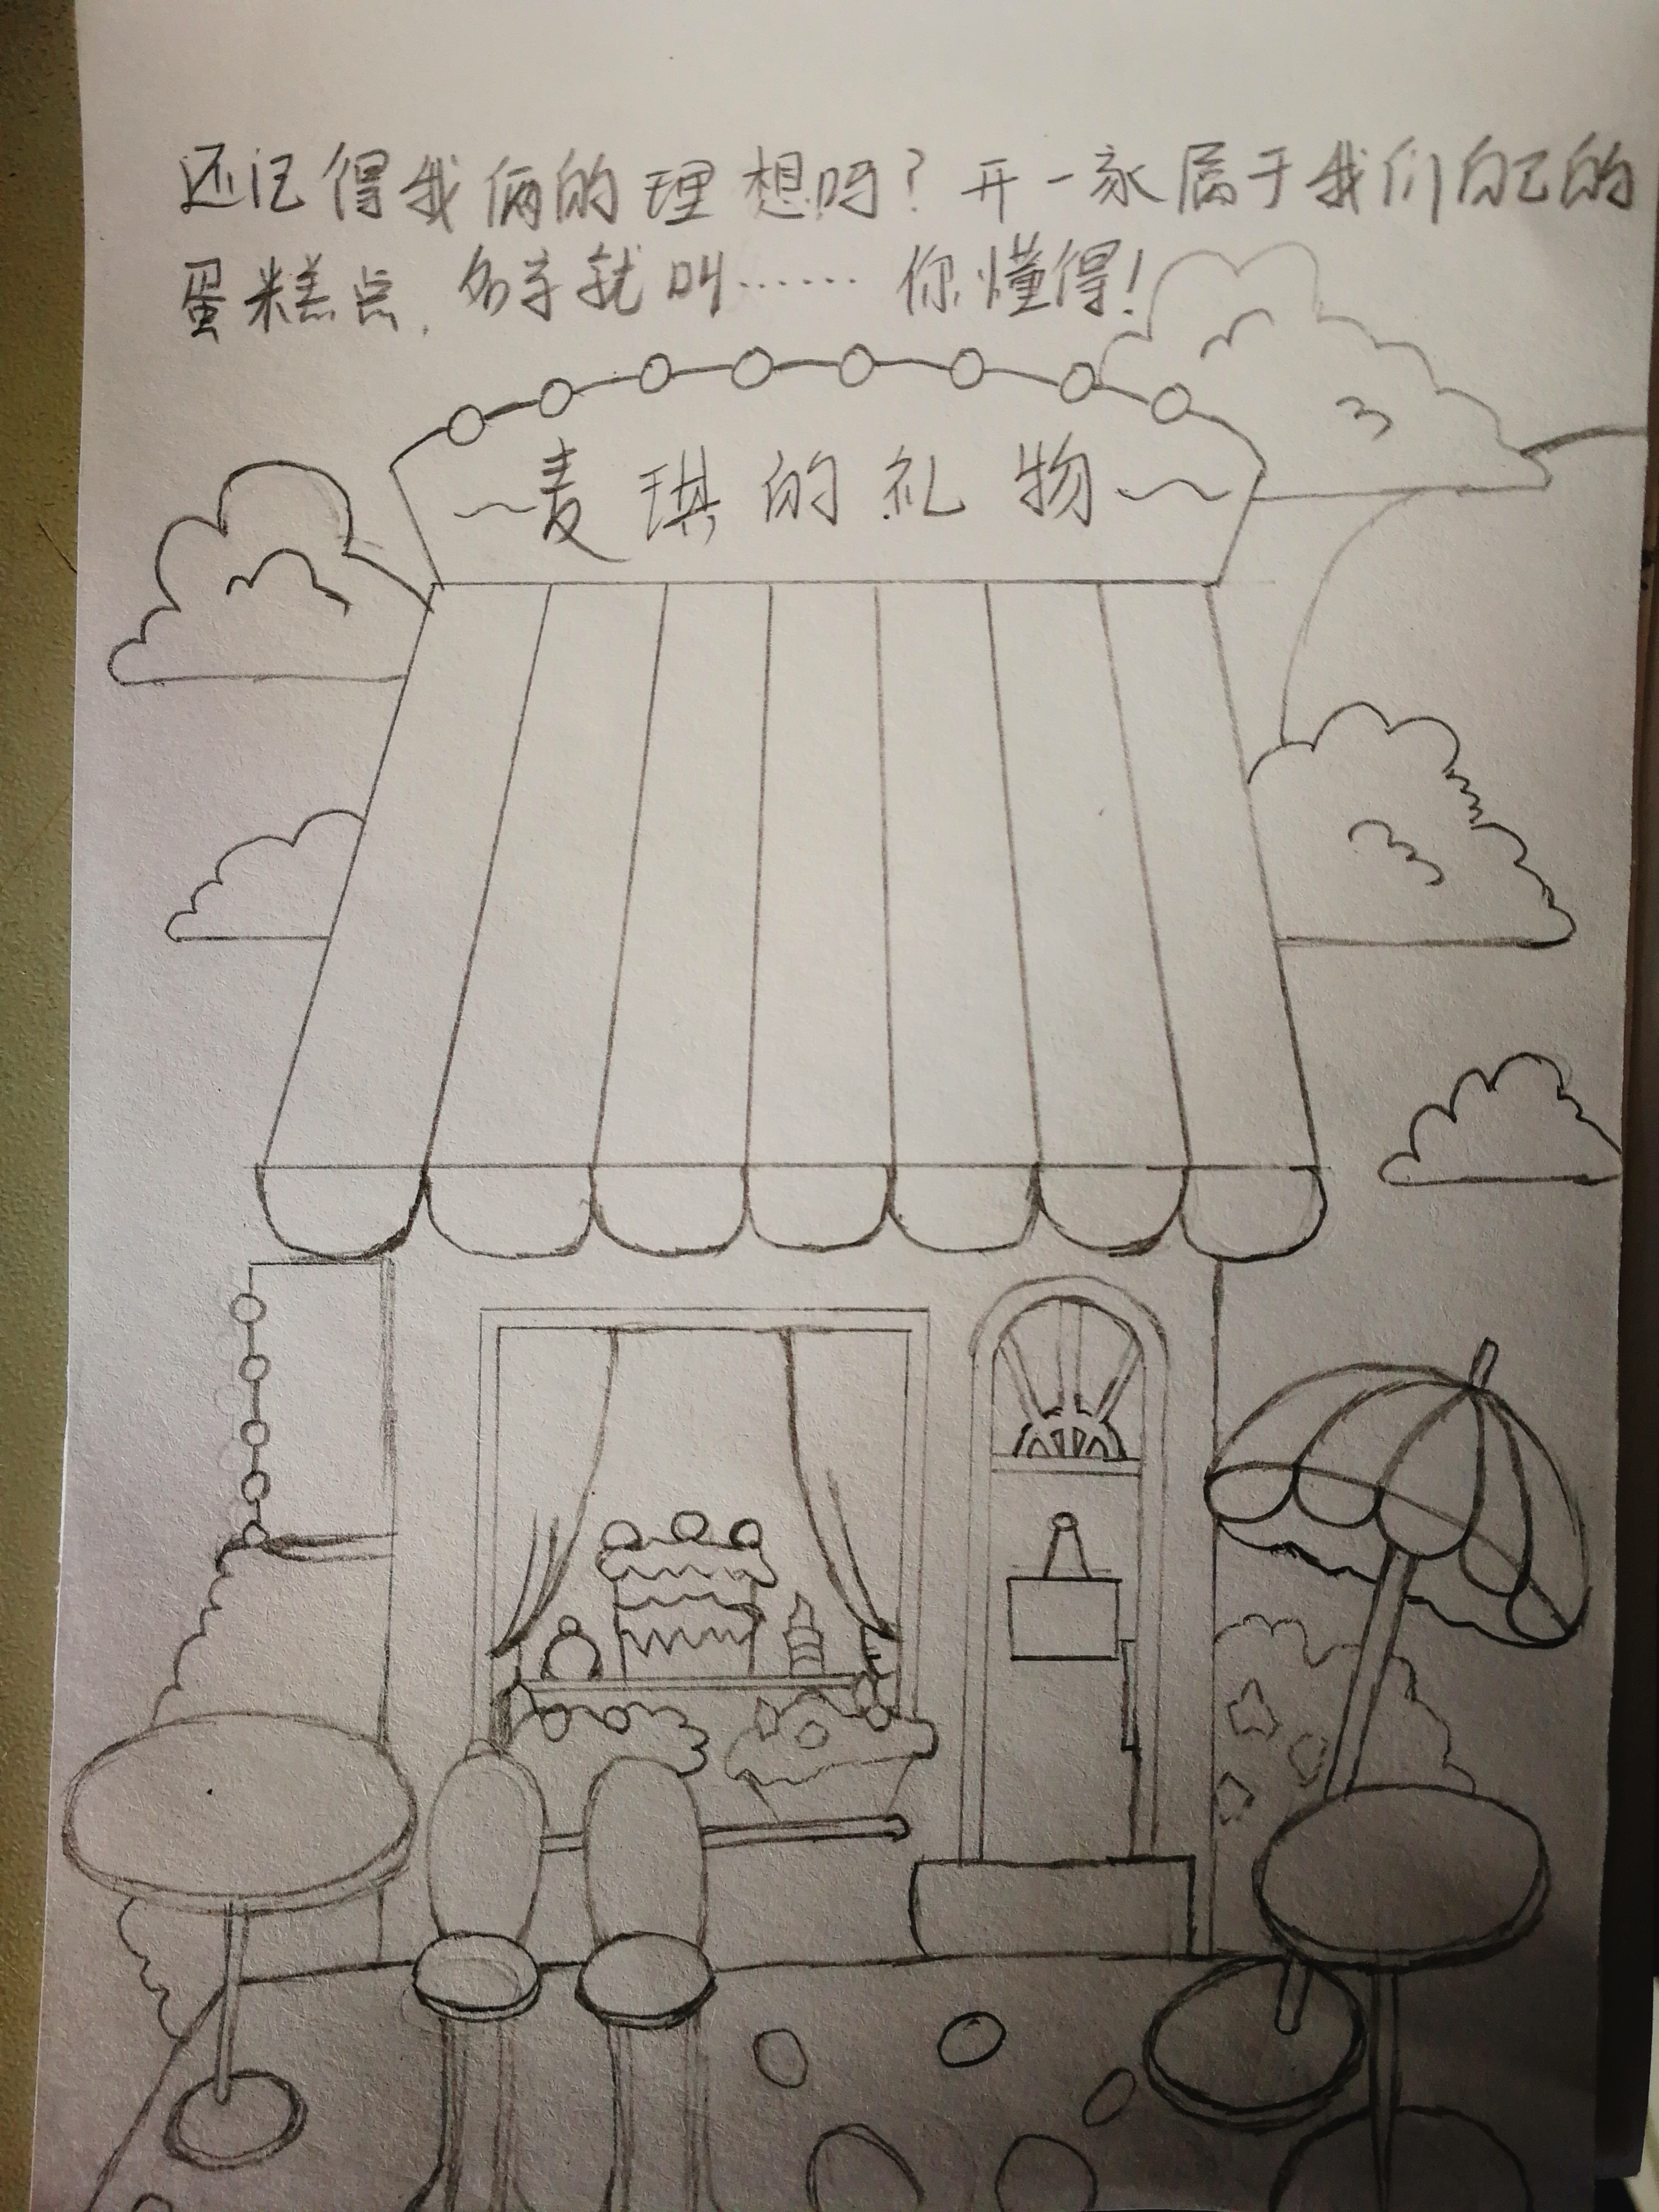 还记得我俩的理想吗？开一家属于我们自己的
蛋糕点，名字就叫……你懂得！
～麦琪的礼物～